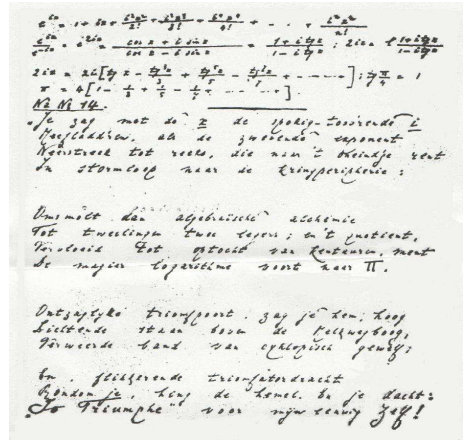 e^{ix} = 1 + ix + \frac{i^2x^2}{2!} + \frac{i^3x^3}{3!} + \frac{i^4x^4}{4!} + - . . + \frac{i^nx^n}{n!}
\frac{e^{ix}}{e^{-ix}} = e^{2ix} = \frac{\cos x + i \sin x}{\cos x - i \sin x} = \frac{1 + i tg x}{1 - i tg x} ; 2ix = l \frac{1 + i tg x}{1 - i tg x}
2ix = 2i [tg x - \frac{tg^3 x}{3} + \frac{tg^5 x}{5} - \frac{tg^7 x}{7} + - - - - - -] ; tg \frac{π}{4} = 1
π = 4 [1 - \frac{1}{3} + \frac{1}{5} - \frac{1}{7} + - - - - - -].
Na № 14.
Je zag met de x de spokig-torsende i
als de exponent
Neerstreek tot reeks, die naar 't eindje rent
In stormloop naar de kringperipherie:
Omsmolt dan algebraïsche alchemie
Tot tweelingen twee legers; en 't quotient,
Vervloeid tot optocht van Kentauren, ment
De magiër logarithme voort naar π.
Ontzaglyke triomfpoort, zag je hem, hoog
Lichtende staan boven de melkwegboog,
band van cyklopisch gewelf;
En, flikkerende triomfatordracht
Rondom je, hing de hemel. En je dacht:
"Io Triumphe" voor mijn eeuwig Zelf!